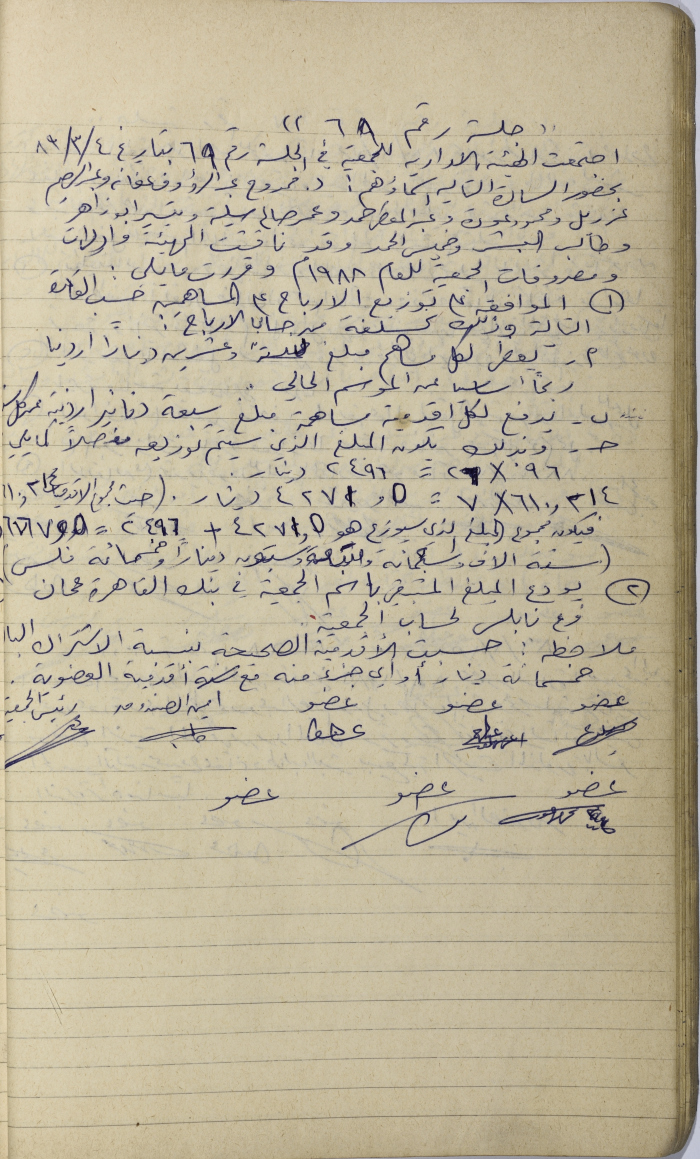 " جلسة رقم ٦٨ "
اجتمعت الهيئة الادارية للجمعية في الجلسة رقم ٦٨ بتاريخ ٤/٣/٨٩
بحضور السادة التالية اسماؤهم : د. ممدوح عبد الرؤوف عفانه وعبد الرحيم
ومحمود عودة وعبد المعطي حمد وعمر صالح سيلة وتيسير ابو زاهر
وطالب البشر وخميس الحمد وقد ناقشت الهيئة واردات
ومصروفات الجمعية للعام ١٩٨٨م وقررت مايلي :
١ الموافقة على توزيع الارباح على المساهمين حسب القاعدة
التالية وذلك كسلفة من حساب الارباح :
أ - يعطى لكل مساهم مبلغ ستة وعشرين ديناراً اردنيا
ربحاً اساسيا عن الموسم الحالي .
ب - يدفع لكل اقدمية مساهمة مبلغ سبعة دنانير اردنية عن كل
ح - وبذلك يكون المبلغ الذي سيتم توزيعه مفصلاً كمايلي
٩٦ × ٢٦ = ٢٤٩٦ دينار .
٦١٠,٢١٤ × ٧ = ٤٢٧١,٥ دينار . (حيث مجموع الاقدميات
فيكون مجموع المبلغ الذي سيوزع هو ٤٢٧١,٥ + ٢٤٩٦ = ٦٧٦٧,٥
(ستة الاف وسبعمائة وسبعة وستون ديناراً وخمسمائة فلس)
٢ يودع المبلغ المتبقي باسم الجمعية في بنك القاهرة عمان
فرع نابلس لحساب الجمعية .
ملاحظة : حسبت الأقدمية الصحيحة بنسبة الاشتراك
خمسمائة دينار أو اي جزء منه مع سنة أقدمية العضوية .
عضو عضو عضو امين الصندوق رئيس الجمعية
عضو عضو عضو